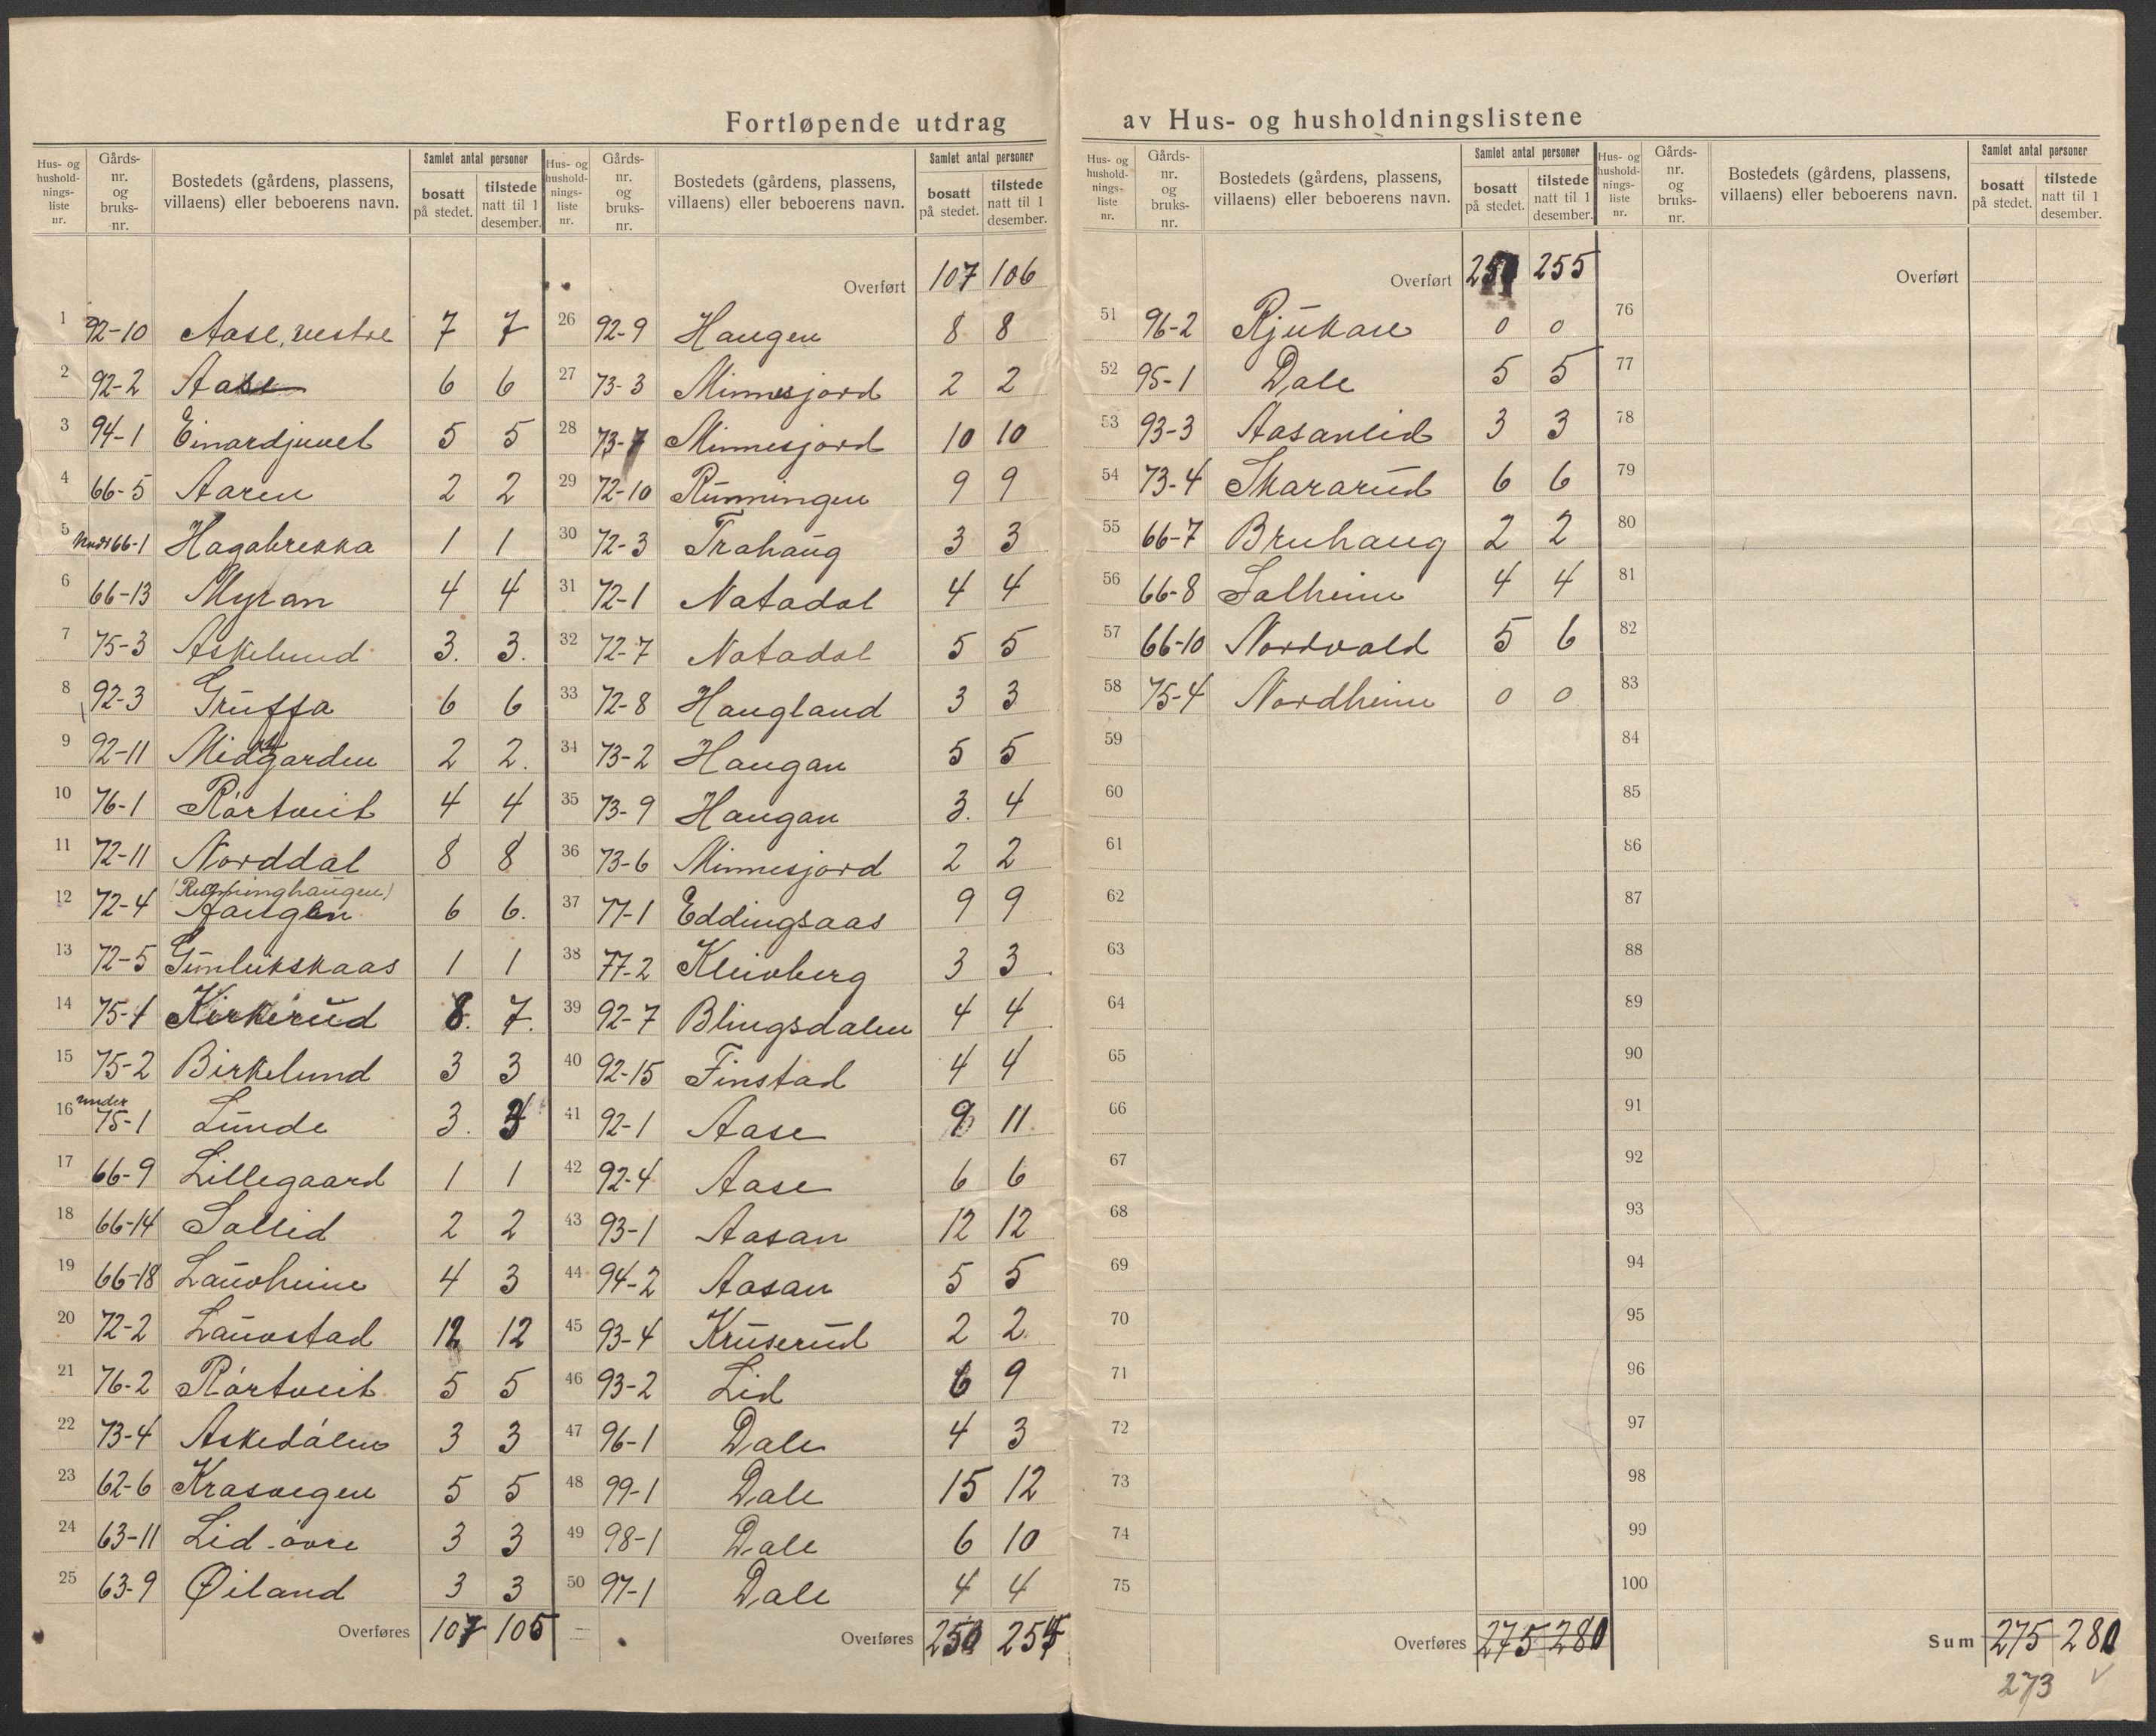 Fortløpende utdrag av Hus- og husholdningslistene
Hus- og husholdnings-liste nr. Gårds-nr. og bruks-nr. Bostedets (gårdens, plassens, villaens) eller beboerens navn. Samlet antal personer bosatt på stedet. tilstede natt til 1 desember.
1 92-10 Aase, vestre 7 7
2 92-2 Aase 6 6
3 94-1 Einardjuvet 5 5
4 66-5 Aaren 2 2
5 66-1 Hagabrekka 1 1
6 66-13 Myran 4 4
7 75-3 Askelund 3. 3.
8 92-3 Gruffa 6 6
9 92-11 Midgarden 2 2.
10 76-1 Rørtveit 4 4
11 72-11 Norddal 8 8
(Runninghaugen)
12 72-4 Haugen 6 6.
13 72-5 Gunlukskaas 1 1
14 75-1 Kirkerud 8. 7.
15 75-2 Birkelund 3 3
under
16 75-1 Lunde 3.
17 66-9 Lillegaard 1 1
18 66-14 Sollid 2 2
19 66-18 Lauvheim 4 3
20 72-2 Lauvstad 12 12
21 76-2 Rørtveit 5 5
22 73-4 Askedalen 3 3
23 62-6 Krasvegen 5 5
24 63-11 Lid-øvre 3 3
25 63-9 Øiland 3 3
Overføres 107 105
Hus- og husholdnings-liste nr. Gårds-nr. og bruks-nr. Bostedets (gårdens, plassens, villaens) eller beboerens navn. Samlet antal personer bosatt på stedet. tilstede natt til 1 desember.
Overført 107 106
26 92-9 Haugen 8 8
27 73-3 Minnesjord 2 2
28 73-7 Minnesjord 10 10
29 72-10 Runningen 9 9
30 72-3 Trahaug 3 3
31 72-1 Natadal 4 4
32 72-7 Natadal 5 5
33 72-8 Haugland 3 3
34 73-2 Haugan 5 5
35 73-9 Haugan 3. 4
36 73-6 Minnesjord 2 2
37 77-1 Eddingsaas 9 9
38 77-2 Kleivberg 3 3
39 92-7 Blingsdalen 4 4
40 92-15 Finstad 4 4
41 92-1 Aase 9 11.
42 92-4 Aase 6 6
43 93-1 Aasan 12 12
44 94-2 Aasan 5 5
45 93-4 Kruserud 2 2
46 93-2 Lid 6 9
47 96-1 Dale 4 3
48 99-1 Dale 15 12
49 98-1 Dale 6 10
50 97-1 Dale 4 4
Overføres 250
Hus- og husholdnings-liste nr. Gårds-nr. og bruks-nr. Bostedets (gårdens, plassens, villaens) eller beboerens navn. Samlet antal personer bosatt på stedet. tilstede natt til 1 desember.
Overført 255
51 96-2 Rjukan 0 0
52 95-1 Dale 5 5
53 93-3 Aasanlid 3 3
54 73-4 Skararud 6 6
55 66-7 Bruhaug 2 2
56 66-8 Solheim 4 4
57 66-10 Nordvald 5 6
58 75-4 Nordheim 0 0
59
60
61
62
63
64
65
66
67
68
69
70
71
72
73
74
75
Overføres 275 280
Hus- og husholdnings-liste nr. Gårds-nr. og bruks-nr. Bostedets (gårdens, plassens, villaens) eller beboerens navn. Samlet antal personer bosatt på stedet. tilstede natt til 1 desember.
Overført
76
77
78
79
80
81
82
83
84
85
86
87
88
89
90
91
92
93
94
95
96
97
98
99
100
Sum 275 280
273